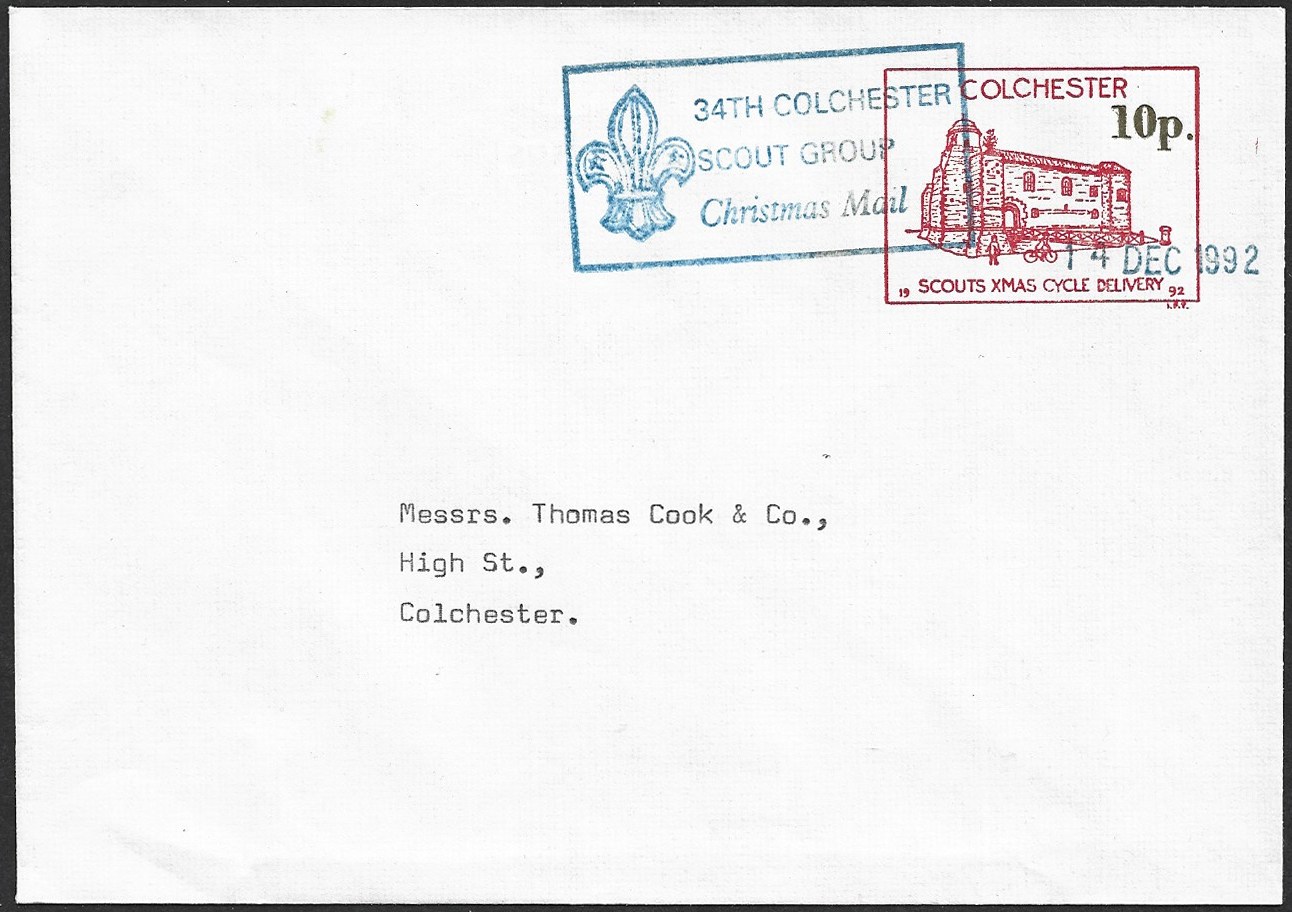 34TH COLCHESTER
SCOUT GROUP
Christmas Mail
COLCHESTER
10p.
14 DEC 1992
19 SCOUTS XMAS CYCLE DELIVERY 92
Messrs. Thomas Cook & Co.,
High St.,
Colchester.